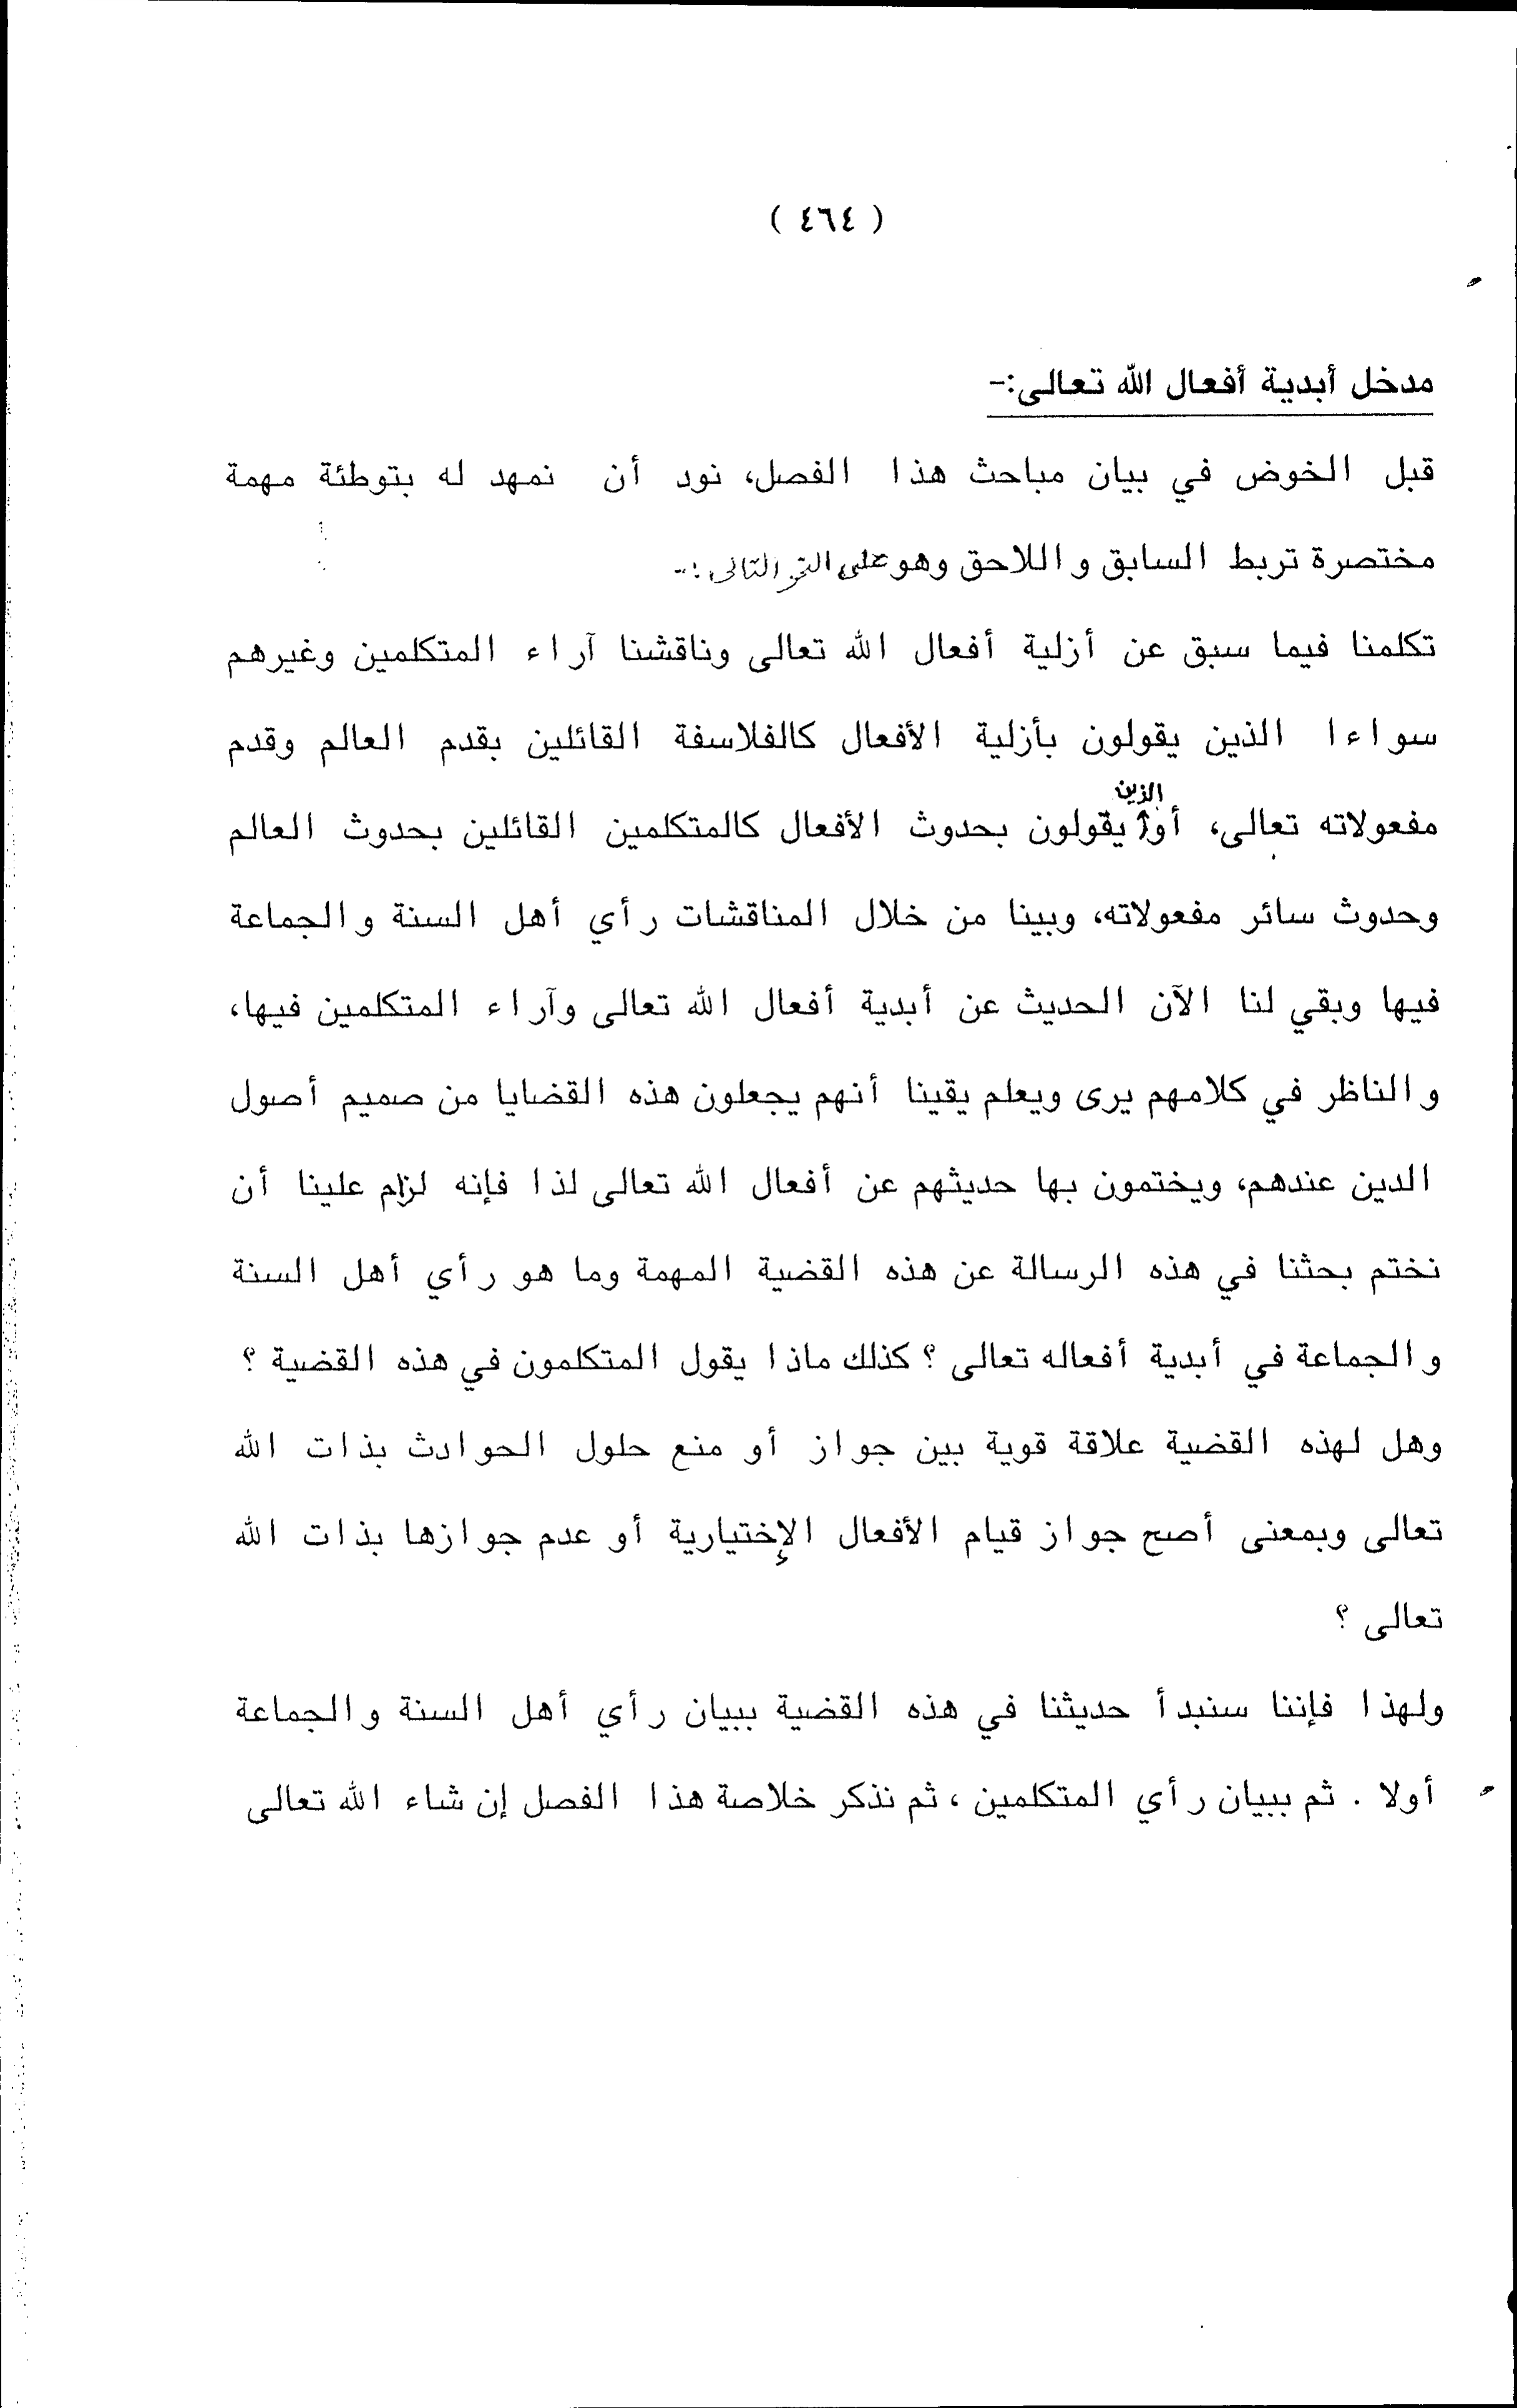 ( ٤٦٤ )
مدخل أبدية أفعال الله تعالى:-
قبل الخوض في بيان مباحث هذا الفصل، نود أن نمهد له بتوطئة مهمة
مختصرة تربط السابق واللاحق وهو على النحو التالى :-
تكلمنا فيما سبق عن أزلية أفعال الله تعالى وناقشنا آراء المتكلمين وغيرهم
سواءا الذين يقولون بأزلية الأفعال كالفلاسفة القائلين بقدم العالم وقدم
مفعولاته تعالى، أو الذين يقولون بحدوث الأفعال كالمتكلمين القائلين بحدوث العالم
وحدوث سائر مفعولاته، وبينا من خلال المناقشات رأي أهل السنة والجماعة
فيها وبقي لنا الآن الحديث عن أبدية أفعال الله تعالى وآراء المتكلمين فيها،
والناظر في كلامهم يرى ويعلم يقينا أنهم يجعلون هذه القضايا من صميم أصول
الدين عندهم، ويختمون بها حديثهم عن أفعال الله تعالى لذا فإنه لزام علينا أن
نختم بحثنا في هذه الرسالة عن هذه القضية المهمة وما هو رأي أهل السنة
والجماعة في أبدية أفعاله تعالى ؟ كذلك ماذا يقول المتكلمون في هذه القضية ؟
وهل لهذه القضية علاقة قوية بين جواز أو منع حلول الحوادث بذات الله
تعالى وبمعنى أصح جواز قيام الأفعال الإختيارية أو عدم جوازها بذات الله
تعالى ؟
ولهذا فإننا سنبدأ حديثنا في هذه القضية ببيان رأي أهل السنة والجماعة
أولا . ثم ببيان رأي المتكلمين ، ثم نذكر خلاصة هذا الفصل إن شاء الله تعالى